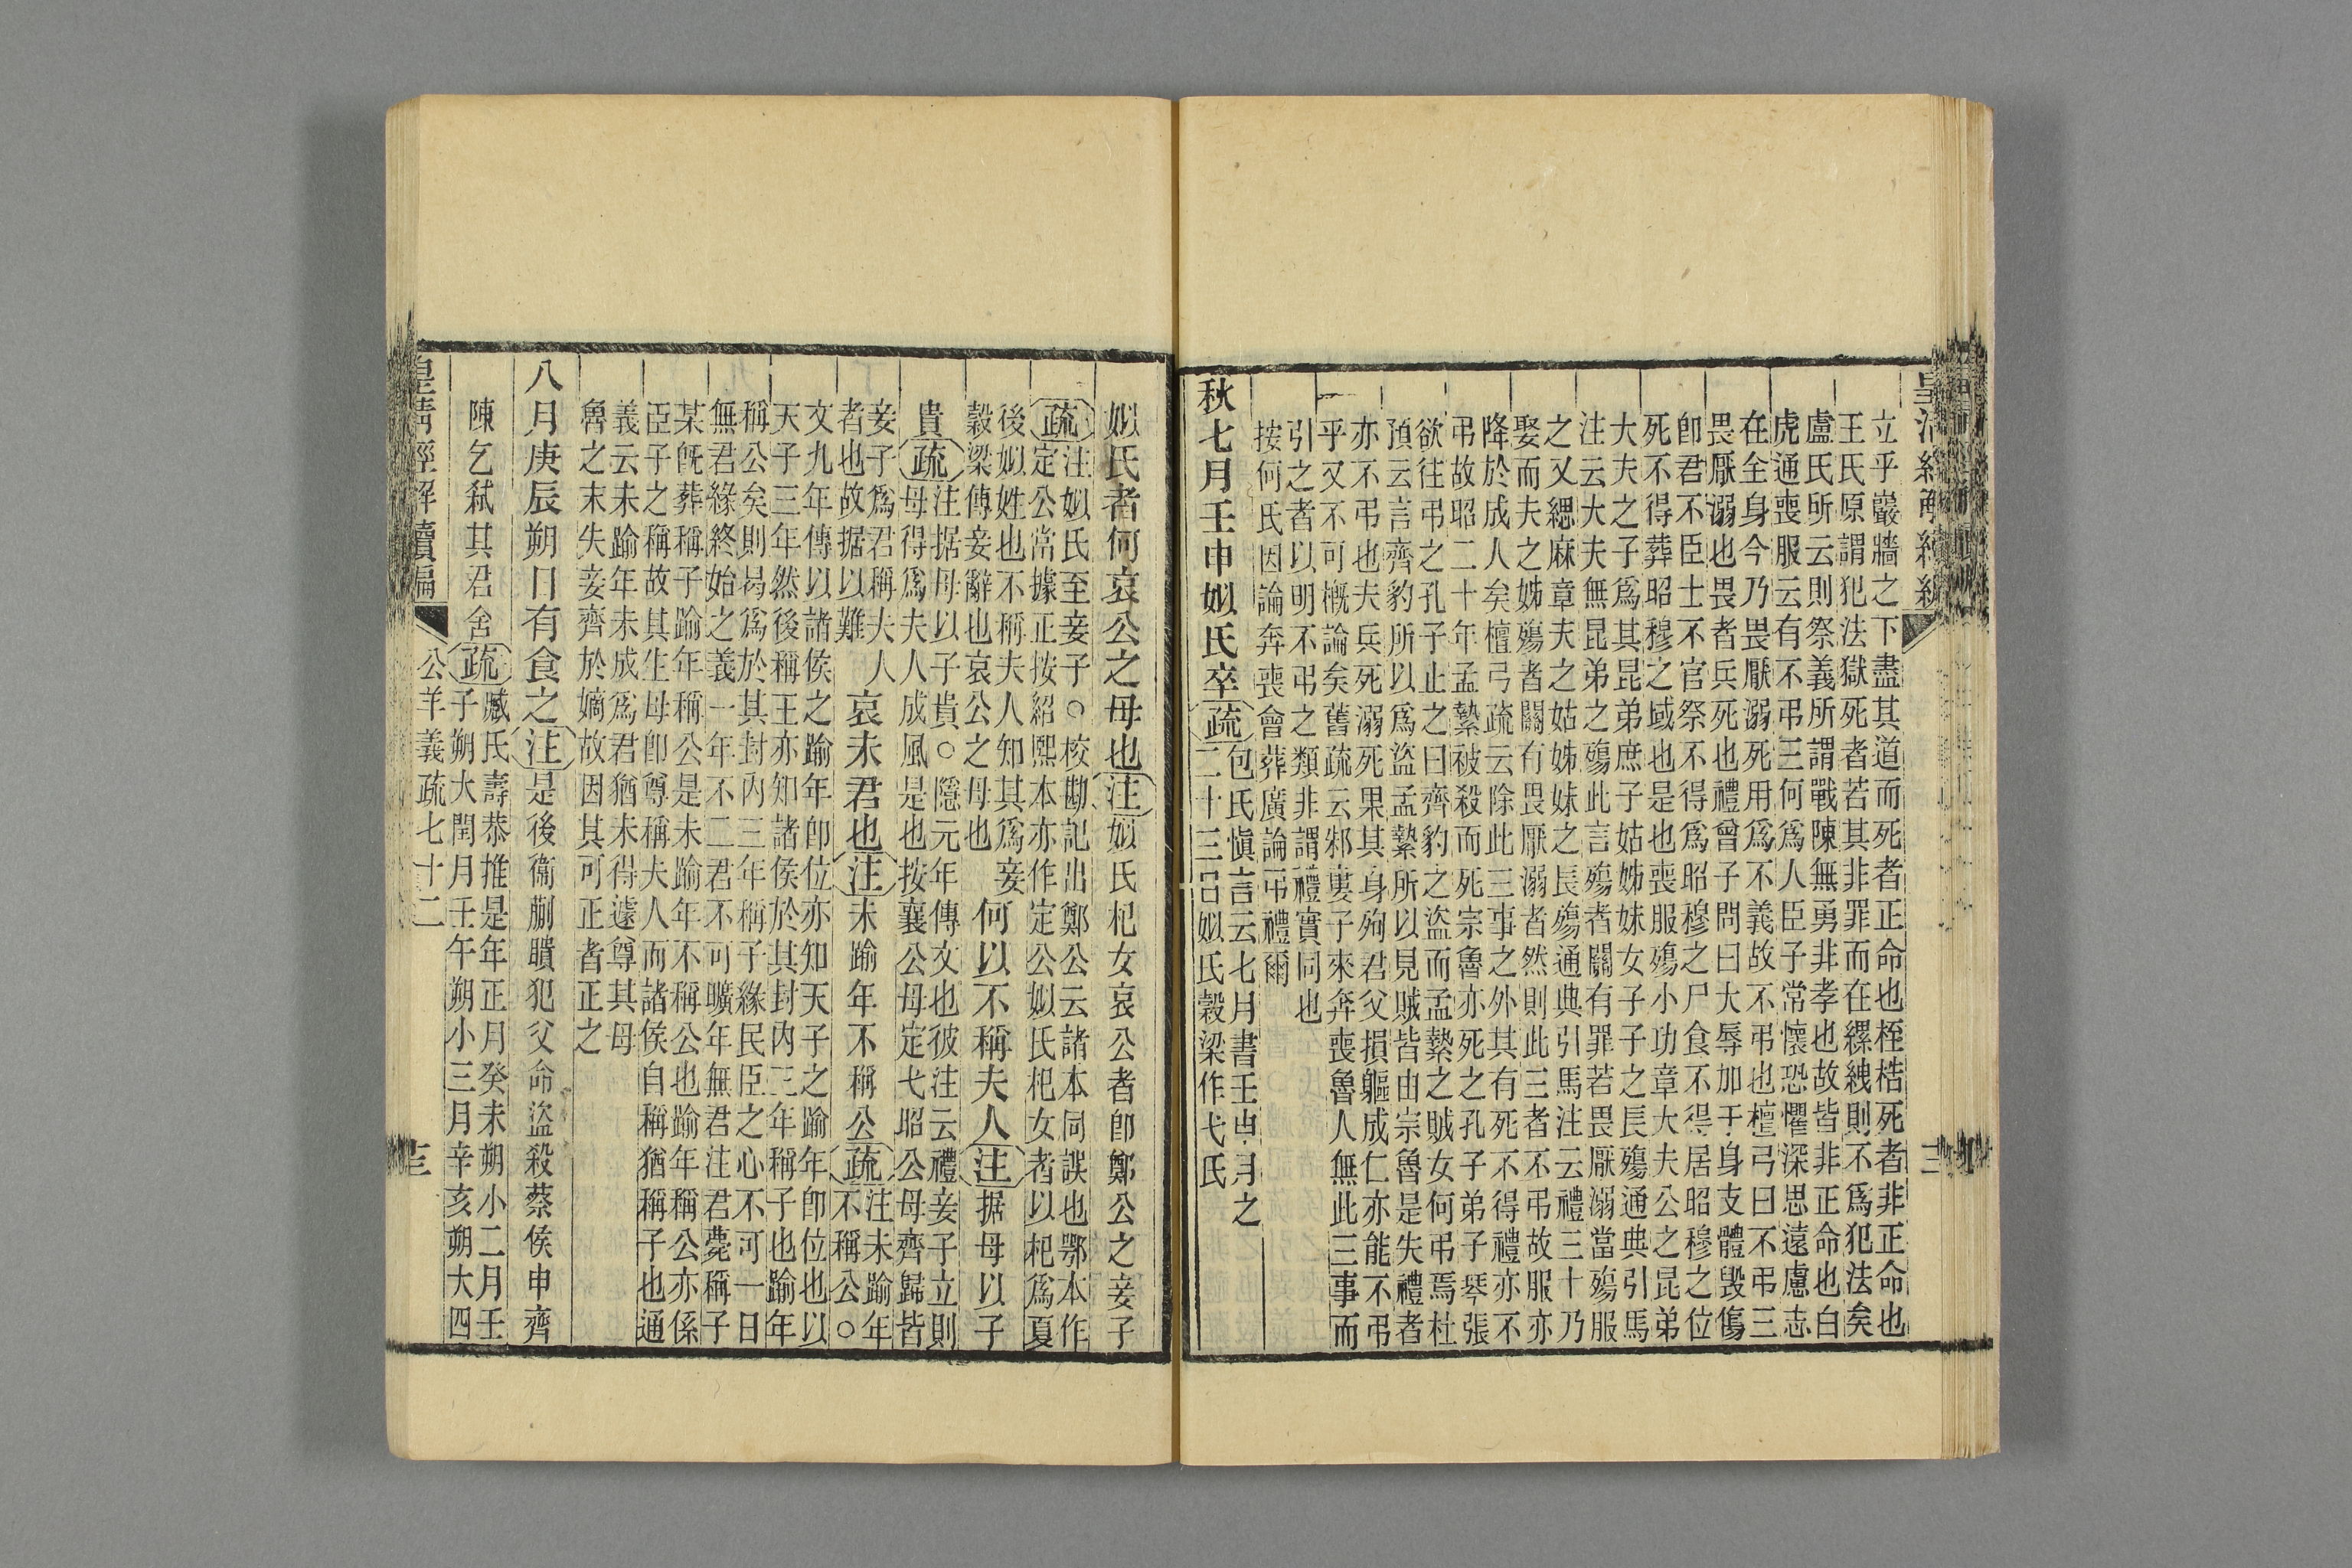 皇清經解續編
立乎巖牆之下盡其道而死者正命也桎梏死者非正命也
王氏原謂犯法獄死者若其非罪而在縲絏則不爲犯法矣
盧氏所云則祭義所謂戰陳無勇非孝也故皆非正命也白
虎通喪服云有不弔三何爲人臣子常懷恐懼深思遠慮志
在全身今乃畏厭溺死用爲不義故不弔也檀弓曰不弔三
畏厭溺也畏者兵死也禮曾子問曰大辱加于身支體毀傷
卽君不臣士不官祭不得爲昭穆之尸食不得居昭穆之位
死不得葬昭穆之域也是也喪服殤小功章大夫公之昆弟
大夫之子爲其昆弟庶子姑姊妹女子子之長殤通典引馬
注云大夫無昆弟之殤此言殤者關有罪若畏厭溺當殤服
之又緦麻章夫之姑姊妹之長殤通典引馬注云禮三十乃
娶而夫之姊殤者關有畏厭溺者然則此三者不弔故服亦
降於成人矣檀弓疏云除此三事之外其有死不得禮亦不
弔故昭二十年孟縶被殺而死宗魯亦死之孔子弟子琴張
欲往弔之孔子止之曰齊豹之盜而孟縶之賊女何弔焉杜
預云言齊豹所以爲盜孟縶所以見賊皆由宗魯是失禮者
亦不弔也夫兵死溺死果其身殉君父損軀成仁亦能不弔
乎又不可概論矣舊疏云邾婁子來奔喪魯人無此三事而
引之者以明不弔之類非謂禮實同也
按何氏因論奔喪會葬廣論弔禮爾
秋七月壬申姒氏卒疏包氏愼言云七月書壬申月之
二十三日姒氏穀梁作弋氏
姒氏者何哀公之母也注姒氏杞女哀公者卽鄭公之妾子
疏注姒氏至妾子○校勘記出鄭公云諸本同誤也鄂本作
定公當據正按紹熙本亦作定公姒氏杞女者以杞爲夏
後姒姓也不稱夫人知其爲妾
穀梁傳妾辭也哀公之母也
何以不稱夫人注据母以子
貴疏注据母以子貴○隱元年傳文也彼注云禮妾子立則
母得爲夫人成風是也按襄公母定弋昭公母齊歸皆
妾子爲君稱夫人
者也故据以難
哀未君也注未踰年不稱公疏注未踰年
不稱公○
文九年傳以諸侯之踰年卽位亦知天子之踰年卽位也以
天子三年然後稱王亦知諸侯於其封內三年稱子也踰年
稱公矣則曷爲於其封內三年稱子緣民臣之心不可一日
無君緣終始之義一年不二君不可曠年無君注君薨稱子
某旣葬稱子踰年稱公是未踰年不稱公也踰年稱公亦係
臣子之稱故其生母卽尊稱夫人而諸侯自稱猶稱子也通
義云未踰年未成爲君猶未得遽尊其母
魯之末失妾齊於嫡故因其可正者正之
八月庚辰朔日有食之注是後衞蒯聵犯父命盜殺蔡侯申齊
陳乞弒其君舍疏臧氏壽恭推是年正月癸未朔小二月壬
子朔大閏月壬午朔小三月辛亥朔大四
皇清經解續編 公羊義疏七十二